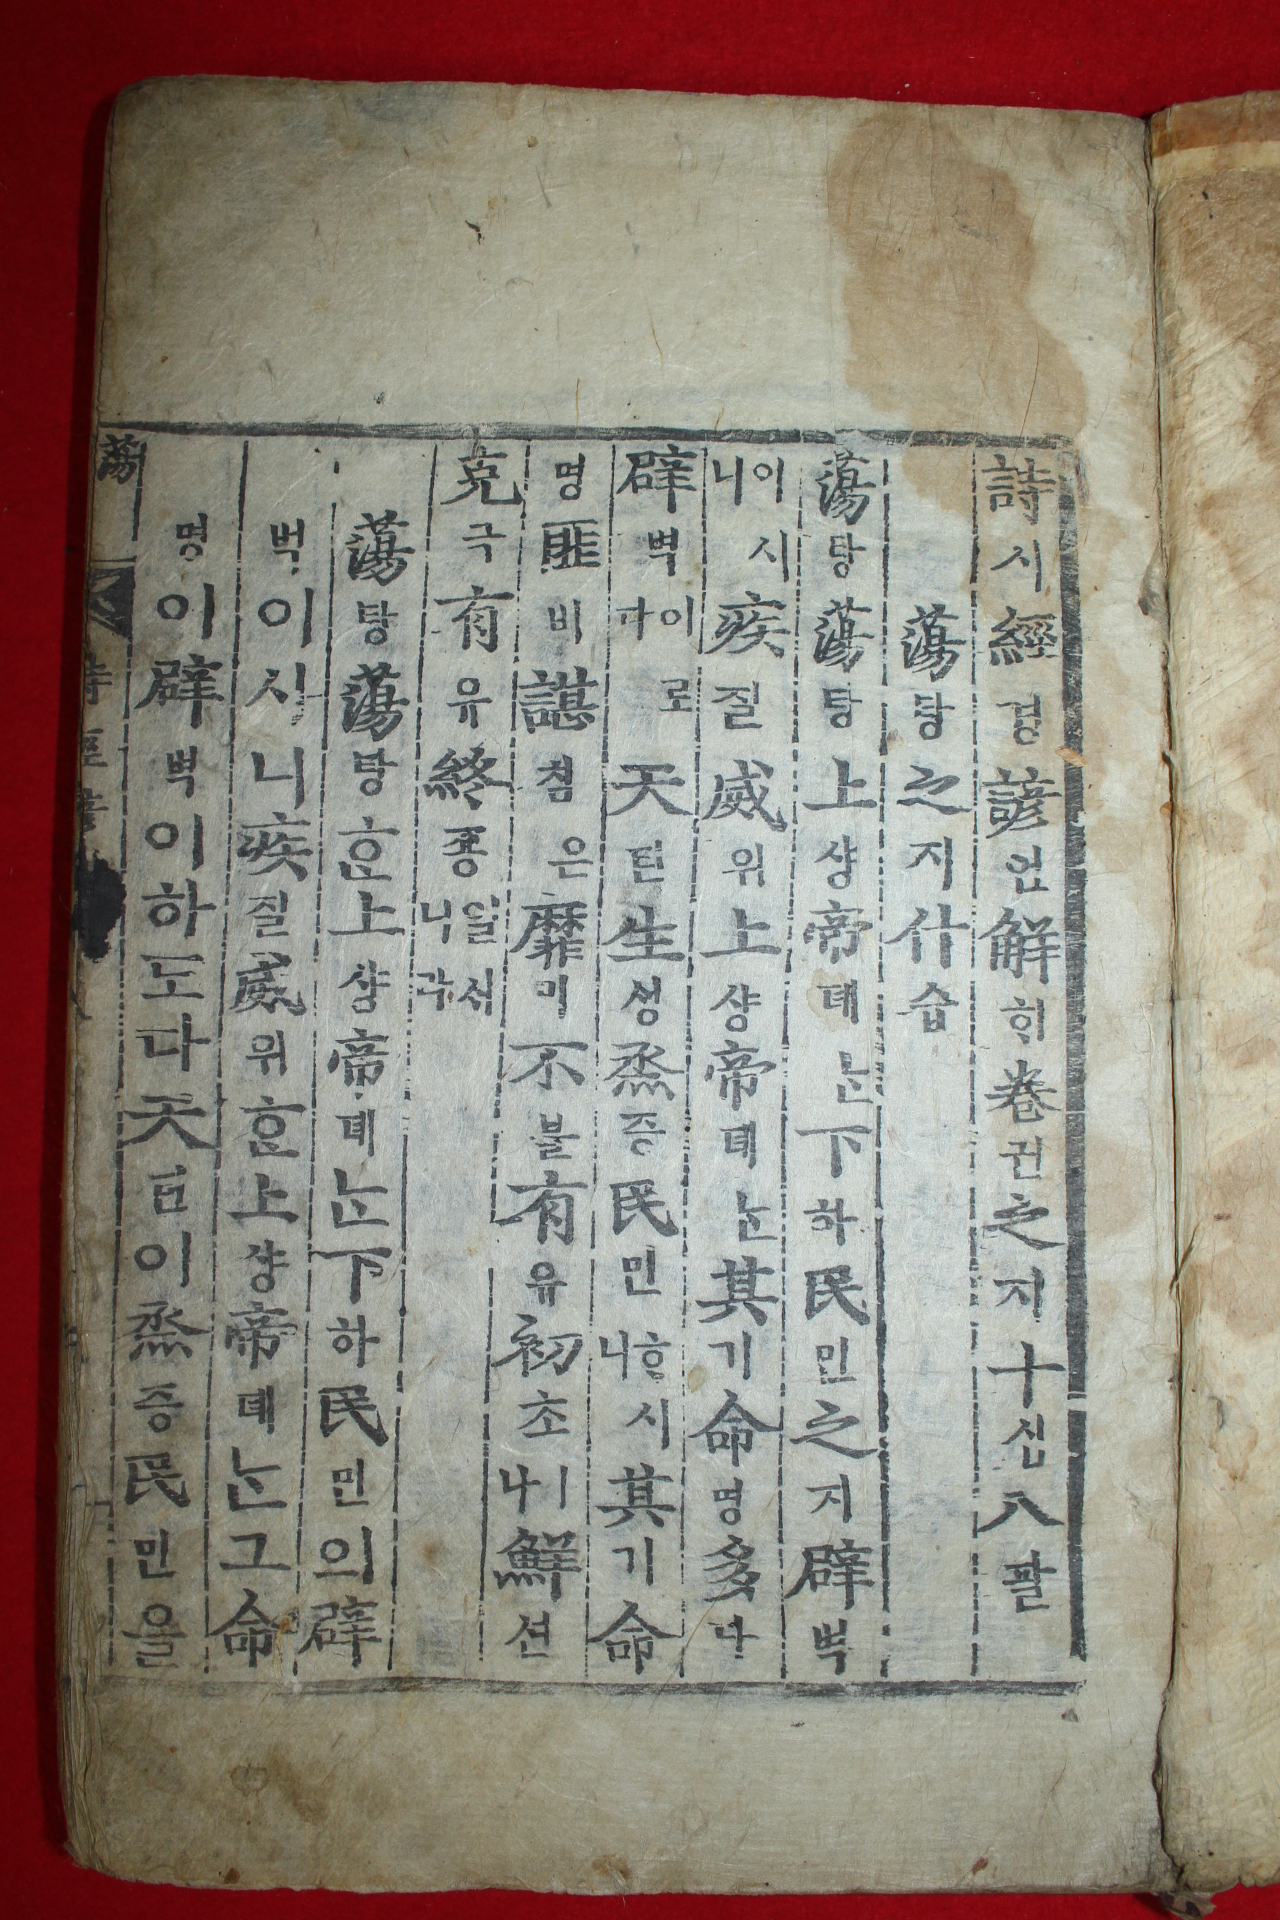 詩시經경諺언解ᄒᆡ卷권之지十십八팔
蕩탕之지什습
蕩탕蕩탕上샹帝뎨ᄂᆞᆫ下하民민之지辟벽
이시니疾질威위上샹帝뎨ᄂᆞᆫ其기命명多다
辟벽이로다天텬生ᄉᆡᆼ烝증民민ᄒᆞ시나其기命
명匪비諶침은靡미不불有유初초ㅣ나鮮션
克극有유終죵일ᄉᆡ니라
蕩탕蕩탕ᄒᆞᆫ上샹帝뎨ᄂᆞᆫ下하民민의辟
벽이시니疾질威위ᄒᆞᆫ上샹帝뎨ᄂᆞᆫ그命
명이辟벽이하도다天텬이烝증民민을
蕩